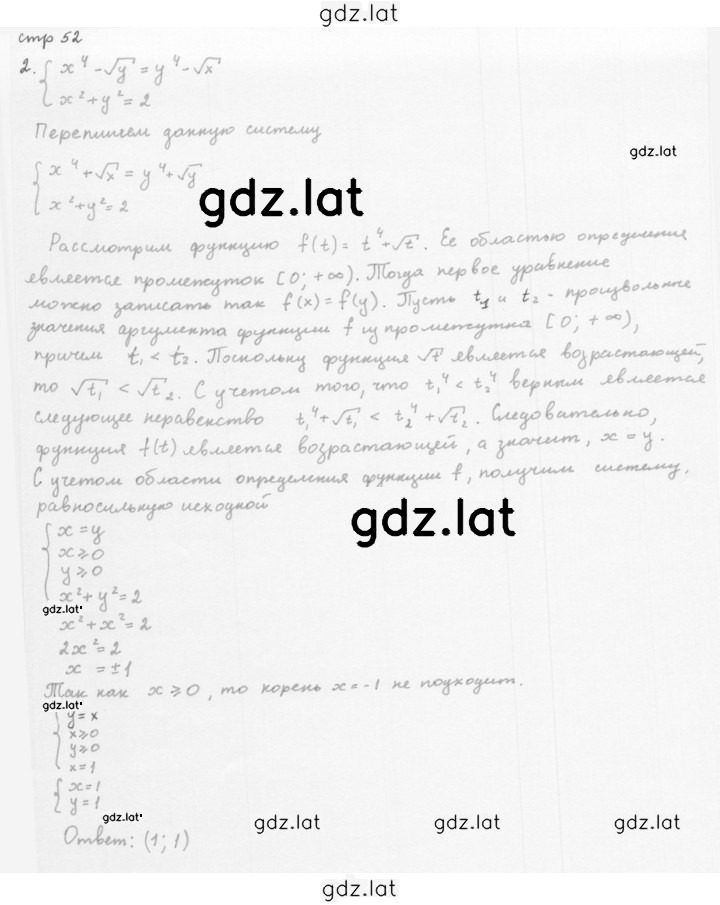 gdz.lat
стр 52
2. { x⁴ - √y = y⁴ - √x
x² + y² = 2
Перепишем данную систему
gdz.lat
{ x⁴ + √x = y⁴ + √y
x² + y² = 2
gdz.lat
Рассмотрим функцию f(t) = t⁴ + √t. Ее областью определения
является промежуток [0; +∞). Тогда первое уравнение
можно записать так f(x) = f(y). Пусть t₁ и t₂ - произвольные
значения аргумента функции f из промежутка [0; +∞),
причем t₁ < t₂. Поскольку функция √t является возрастающей,
то √t₁ < √t₂. С учетом того, что t₁⁴ < t₂⁴ верным является
следующее неравенство t₁⁴ + √t₁ < t₂⁴ + √t₂. Следовательно,
функция f(t) является возрастающей, а значит, x = y.
С учетом области определения функции f, получим систему,
равносильную исходной
gdz.lat
{ x = y
x ⩾ 0
y ⩾ 0
x² + y² = 2
gdz.lat
x² + x² = 2
2x² = 2
x = ±1
Так как x ⩾ 0, то корень x = -1 не подходит.
gdz.lat
{ y = x
x ⩾ 0
y ⩾ 0
x = 1
{ x = 1
y = 1
gdz.lat
Ответ: (1; 1)
gdz.lat gdz.lat gdz.lat
gdz.lat